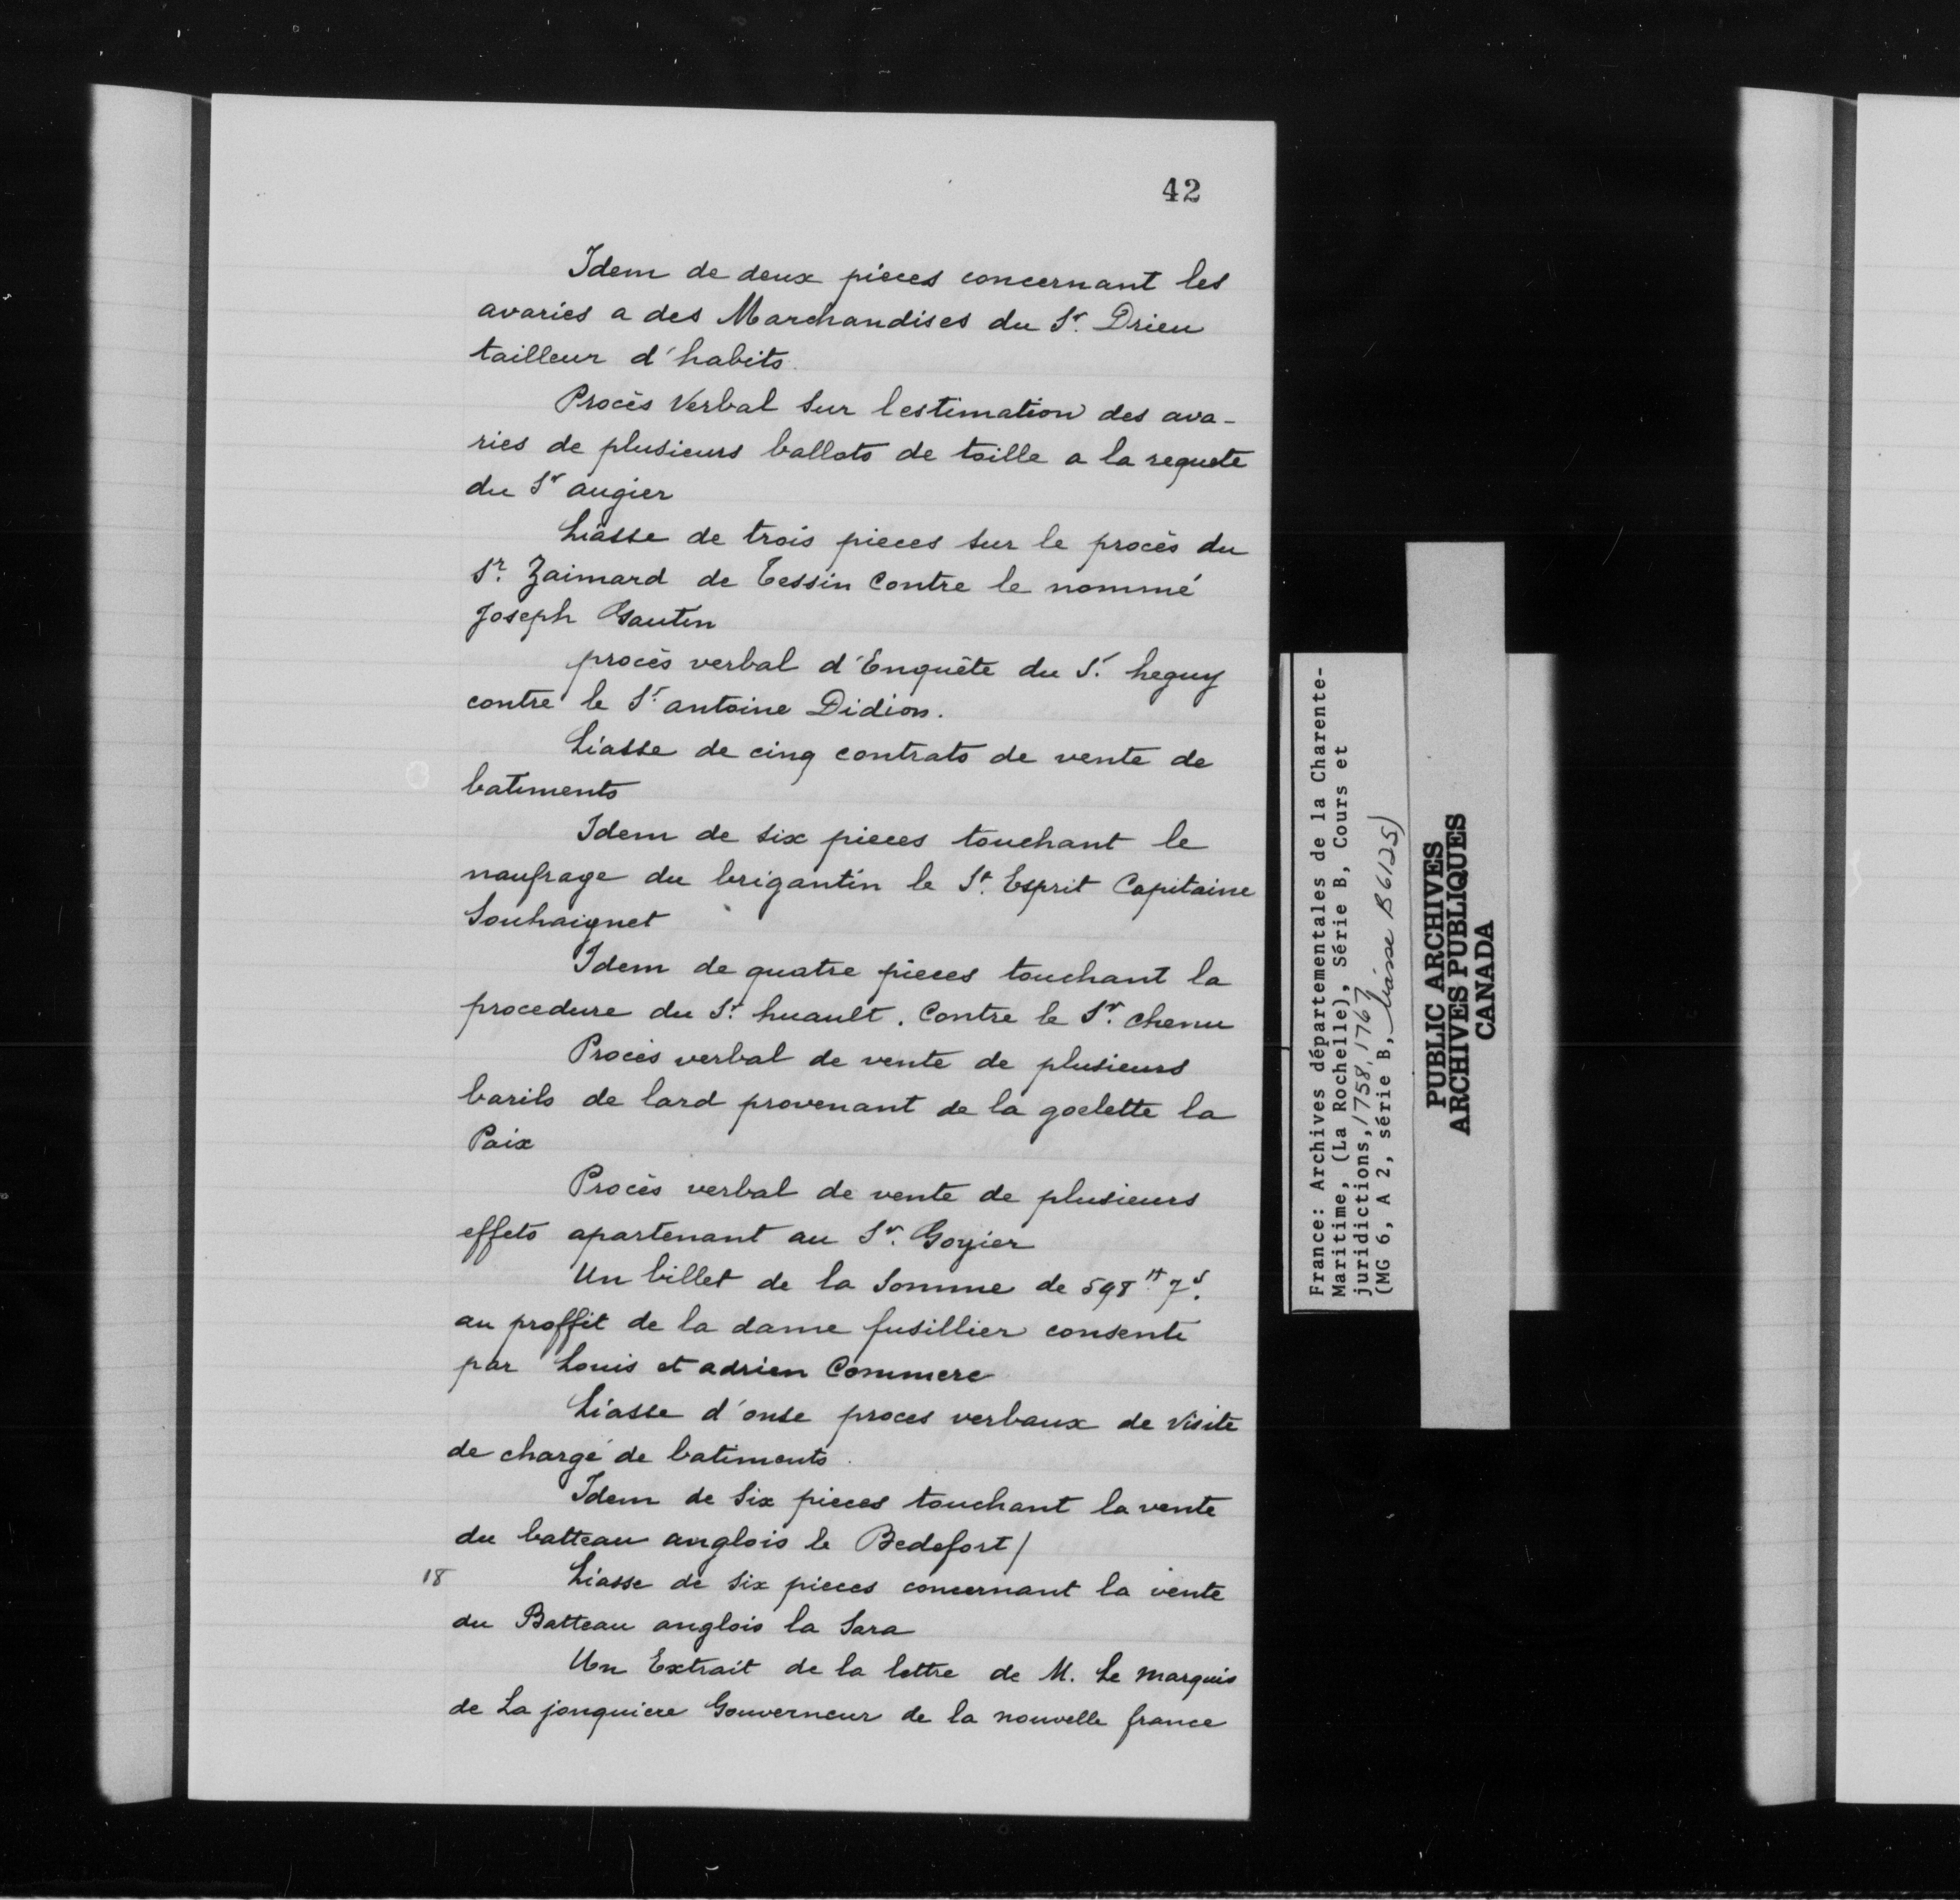 42
Idem de deux pièces concernant les
avaries a des Marchandises du Sr. Drieu
tailleur d'habits.
Procès Verbal sur lestimation des ava-
ries de plusieurs ballots de toille a la requete
du Sr augier
Liasse de trois pieces sur le procès du
Sr. Zaimard de Tessin Contre le nommé
Joseph Gautin
procès verbal d'Enquête du Sr. heguy
contre le Sr. antoine Didion.
Liasse de cinq contrats de vente de
batiments
Idem de six pieces touchant le
naufrage du brigantin le St. Esprit Capitaine
Souhaignet
Idem de quatre pieces touchant la
procedure du Sr. huault. Contre le Sr. chenu
Procès verbal de vente de plusieurs
barils de lard provenant de la goelette la
Paix
Procès verbal de vente de plusieurs
effets apartenant au Sr. Goyier
Un billet de la Somme de 598 ₶ 7 s.
au proffit de la dame fusillier consenti
par Louis et adrien Commere
Liasse d'onse proces verbaux de visite
de chargé de batiments.
Idem de Six pieces touchant la vente
du batteau anglois le Bedefort/
18 Liasse de six pieces concernant la vente
du Batteau anglois la Sara
Un Extrait de la lettre de M. Le marquis
de La jonquiere Gouverneur de la nouvelle france
France: Archives départementales de la Charente-
Maritime, (La Rochelle), Série B, Cours et
juridictions, 1758, 1767
(MG 6, A 2, série B, liasse B6125)
PUBLIC ARCHIVES
ARCHIVES PUBLIQUES
CANADA